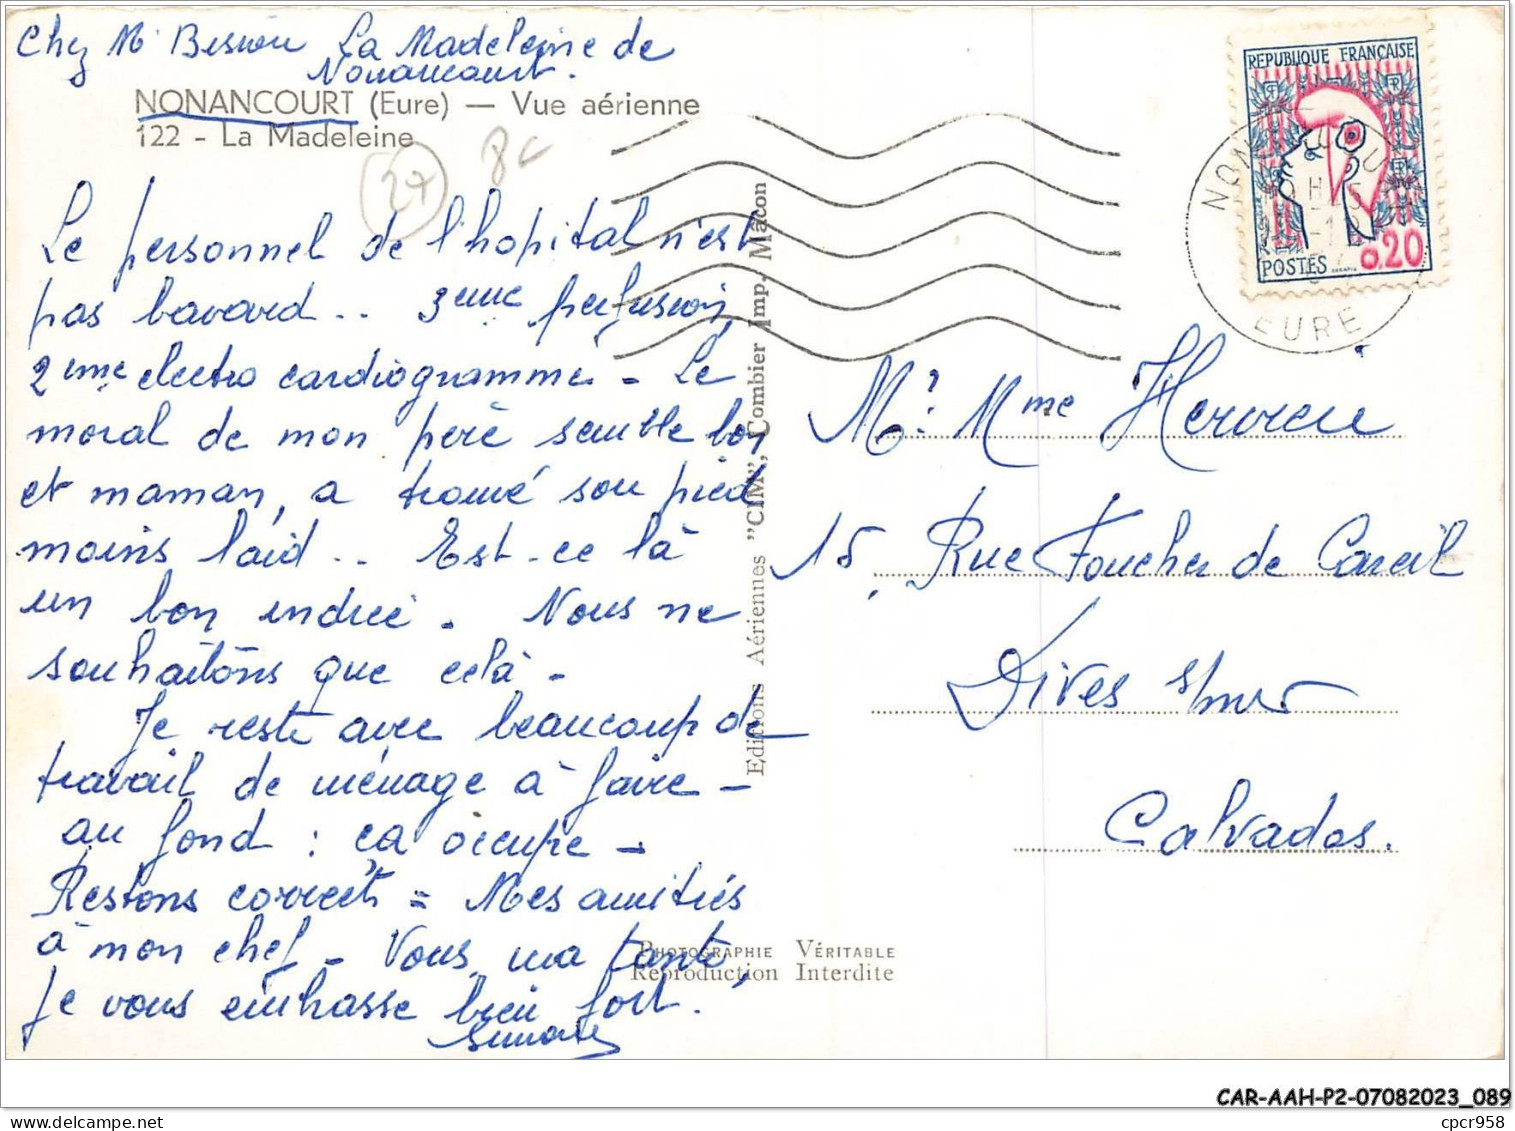 Chez Mr La Madeleine de
Nonancourt.
NONANCOURT (Eure) — Vue aérienne
122 - La Madeleine
27
8c
Le personnel de l'hopital n'est
pas bavard .. 3eme perfusion,
2eme electro cardiogramme - Le
moral de mon père semble bon
et maman, a trouvé son pied
moins laid .. Est-ce là
un bon indice. Nous ne
souhaitons que celà -
Je reste avec beaucoup de
travail de ménage à faire -
au fond : ca occupe -
Restons corrects = Mes amitiés
à mon chef - Vous, ma tante,
Je vous embrasse bien fort.
Simone
Editions Aériennes "CIM", Combier Imp. Mâcon
PHOTOGRAPHIE VÉRITABLE
Reproduction Interdite
REPUBLIQUE FRANÇAISE
POSTES
0,20
EURE
Mr. Mme Hervieu
15, Rue Foucher de Careil
Dives s/mer
Calvados.
CAR-AAH-P2-07082023_089
cpcr958